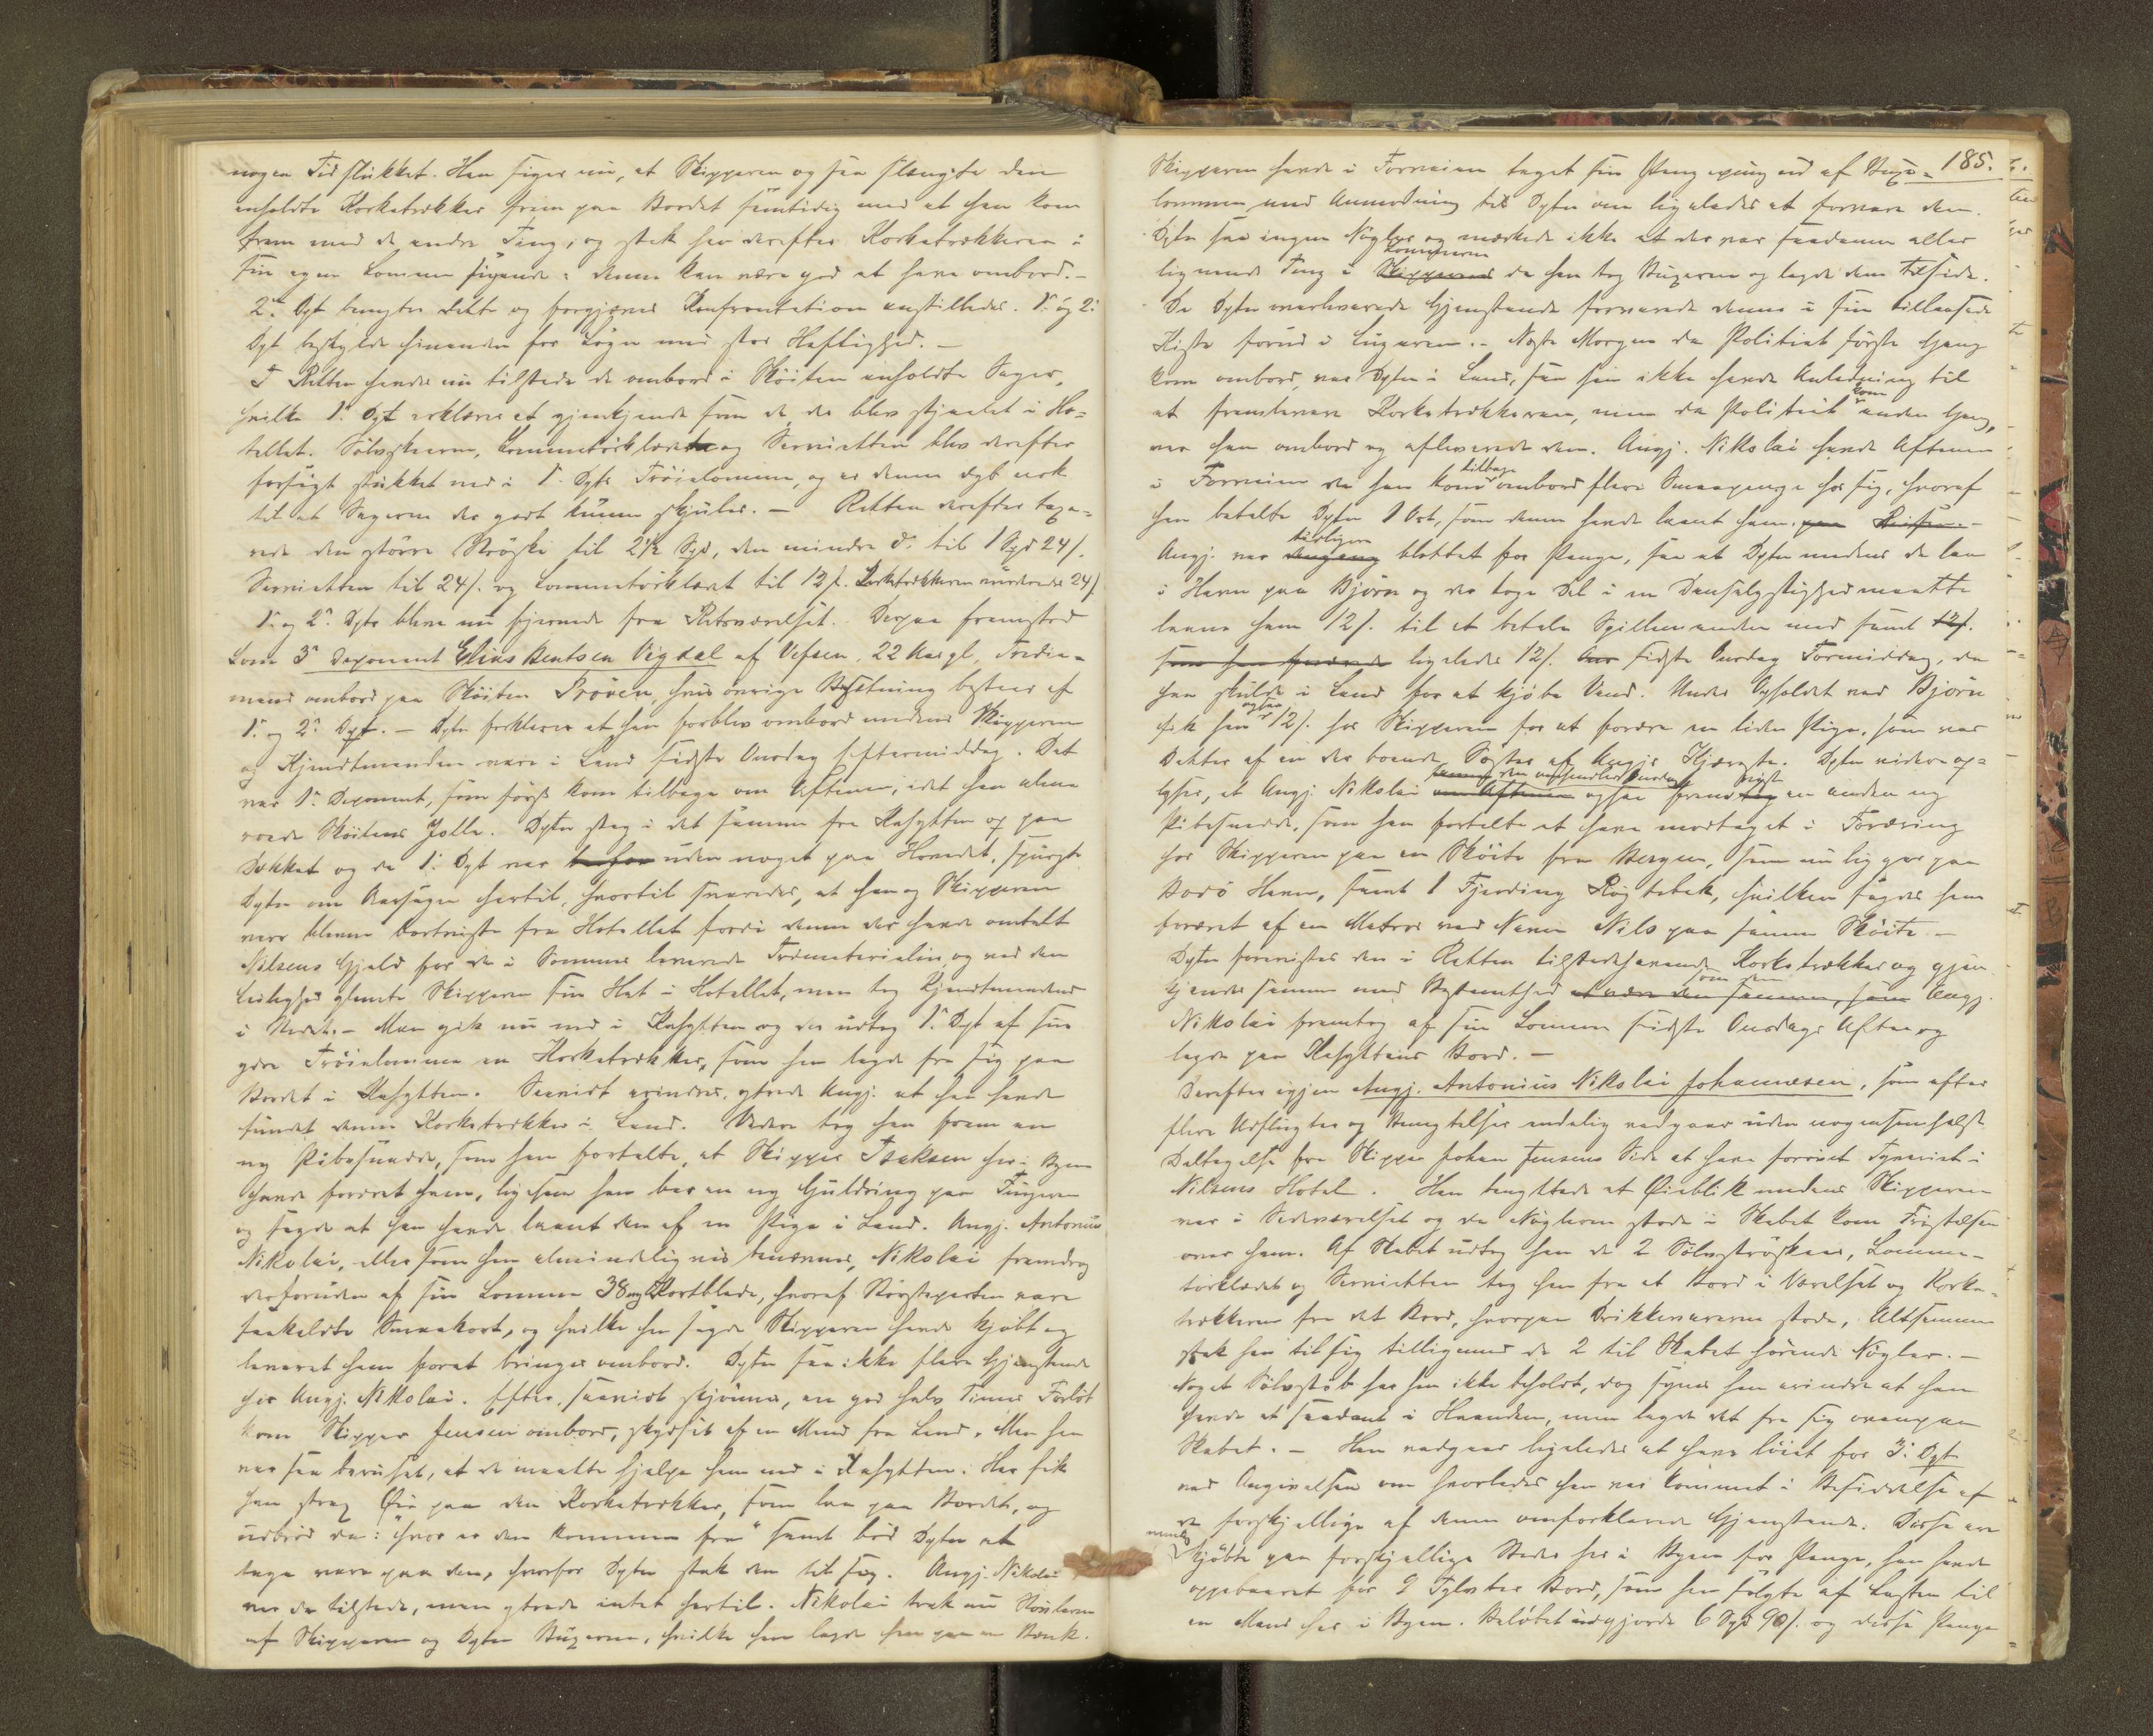 nogen Tid stukket. Han siger nu, at Skipperen og saa slængte den
anholdte Korketrækker frem paa Bordet samtidig med at han kom
frem med de andre Ting, og stak saa derefter Korketrækkeren i
sin egen Lomme sigende: denne kan være god at have ombord. -
2. Dpt benegter dette og forgjæves Konfrontation anstilledes. 1. og 2.
Dpt beskyldte hinanden for Løgn med stor Heftighed. -
I Retten havdes nu tilstede de ombord i Skøiten anholdte Sager,
hvilke 1. Dpt erklærer at gjenkjende som de, der blev stjaalet i Ho=
tellet. Sølvskeerne, Lommetørklædet og Servietten blev derefter
forsøgt stukket ned i 1. Dpts Trøielomme, og er denne dyb nok
til at Sagerne der godt kunne skjules. - Retten derefter taxe=
rede den større Strøske til 2½ Spd, den mindre do. til 1 Spd 24 s.
Servietten til 24 s. og Lommetørklædet til 12 s. Korketrækkeren vurderedes 24 s.
1. og 2. Dpts bleve nu fjernede fra Retsværelset. Derpaa fremstod
som 3. Deponent Elias Bentsen Vigdal af Vefsen, 22 Aar gl, Tredie=
mand ombord paa Skøiten Prøven, hvis øvrige Besætning bestaar af
1. og 2. Dpt. - Dptn forklarer at han forblev ombord medens Skipperen
og Kjendtmanden vare i Land sidste Onsdag Eftermiddag. Det
var 1. Deponent, som først kom tilbage om Aftenen, idet han alene
roede Skøitens Jolle. Dptn steg i det samme fra Kahytten op paa
Dækket og da 1. Dpt var uden noget paa Hovedet, spurgte
Dptn om Aarsagen hertil, hvortil svaredes, at han og Skipperen
vare blevne bortviste fra Hotellet fordi denne der havde omtalt
Nilsens Gjæld for de i Sommer leverede Træmaterialier, og ved den
Leilighed glemte Skipperen sin Hat i Hotellet, men tog Kjendtmandens
i Stedet. - Man gik nu ned i Kahytten og der udtog 1. Dpt af sin
ydre Trøielomme en Korketrækker, som han lagde fra sig paa
Bordet i Kahytten. Saavidt erindres, ytrede Angj. at han havde
fundet denne Korketrækker i Land. Videre tog han frem en
ny Pibesnadde, som han fortalte, at Skipper Isaksen her i Byen
havde foræret ham, ligesom han bar en ny Guldring paa Fingeren
og sagde at han havde laant den af en Pige i Land. Angj. Antonius
Nikolai, eller som han almindeligvis benævnes, Nikolai fremdrog
desforuden af sin Lomme 38 ny Kortblade, hvoraf Størsteparten vare
saakaldte Smaakort, og hvilke han sagde Skipperen havde kjøbt og
leveret ham forat bringes ombord. Dptn saa ikke flere Gjenstande
hos Angj. Nikolai. Efter, saavidt skjønnes, en god halv Times Forløb
kom Skipper Jensen ombord, skydset af en Mand fra Land. Men han
var saa beruset, at de maatte hjælpe ham ned i Kahytten. Her fik
han strax Øie paa den Korketrækker, som laa paa Bordet, og
udbrød da: "hvor er den kommen fra" samt bød Dptn at
tage vare paa den, hvorfor Dptn stak den til sig. Angj. Nikolai
var da tilstede, men ytrede intet hertil. Nikolai trak nu Støvlerne
af Skipperen og Dptn Buxerne, hvilke han lagde hen paa en Bænk.
185.
Skipperen havde i Forveien taget sin Pengepung ud af Buxe=
lommen med Anmodning til Dptn om ligeledes at forvare den.
Dptn saa ingen Nøgler og mærkede ikke at der var saadanne eller
lignende Ting i Lommerne da han tog Buxerne og lagde dem tilside.
De Dptn overleverede Gjenstande forvarede denne i sin tillaasede
Kiste forud i Lugaren. - Næste Morgen da Politiet første Gang
kom ombord, var Dptn i Land, saa han ikke havde Anledning til
at fremlevere Korketrækkeren, men da Politiet kom anden Gang,
var han ombord og afleverede den. Angj. Nikolai havde Aftenen
i Forveien da han kom tilbage ombord flere Smaapenge hos sig, hvoraf
han betalte Dptn 1 Ort, som denne havde laant ham. paa Reisen. -
Angj. var tidligere blottet for Penge, saa at Dptn medens de laa
i Havn paa Bjørn og der toge Del i en Dandselystighed maatte
laane ham 12 s. til at betale Spillemanden med samt 12 s.
ligeledes 12 s. sidste Onsdag Formiddag, da
han skulde i Land for at kjøbe Vand. Under Opholdet ved Bjørn
fik han ogsaa 12 s. hos Skipperen for at forære en liden Pige, som var
Datter af en der boende Søster af Angjs Kjæreste. Dptn videre op=
lyser, at Angj. Nikolai ogsaa fremviste en anden ny
Pibesnadde, som han fortalte at have modtaget i Foræring
hos Skipperen paa en Skøite fra Bergen, som nu ligger paa
Bodø Havn, samt 1 Fjerding Røgtobak, hvilken sagdes ham
foræret af en Matros ved Navn Nils paa samme Skøite. -
Dptn forevistes den i Retten tilstedeværende Korketrækker og gjen=
kjender samme med Bestemthed som den Angj.
Nikolai fremtog af sin Lomme sidste Onsdags Aften og
lagde paa Kahyttens Bord. -
Derefter igjen Angj. Antonius Nikolai Johannesen, som efter
flere Udflugter og Benegtelser endelig vedgaar uden nogensomhelst
Deltagelse fra Skipper Johan Jensens Side at have forøvet Tyveriet i
Nilsens Hotel. Han benyttede et Øieblik medens Skipperen
var i Sideværelset og da Nøglerne stode i Skabet kom Fristelsen
over ham. Af Skabet udtog han de 2 Sølvstrøskeer, Lomme=
tørklædet og Servietten tog han fra et Bord i Værelset og Korke=
trækkeren fra det Bord, hvorpaa Drikkevarerne stode, Altsammen
stak han til sig tilligemed de 2 til Skabet hørende Nøgler. -
Noget Sølvstøb har han ikke beholdt, dog synes han erindre at han
havde et saadant i Haanden, men lagde det fra sig ovenpaa
Skabet. - Han vedgaar ligeledes at have løiet for 3. Dpt
ved Angivelsen om hvorledes han var kommet i Besiddelse af
de forskjellige af denne omforklarede Gjenstande. Disse ere
nemlig kjøbte paa forskjellige Steder her i Byen for Penge, han havde
oppebaaret for 9 Tylvter Bord, som han solgte af Lasten til
en Mand her i Byen. Beløbet udgjorde 6 Spd 90 s. og disse Penge